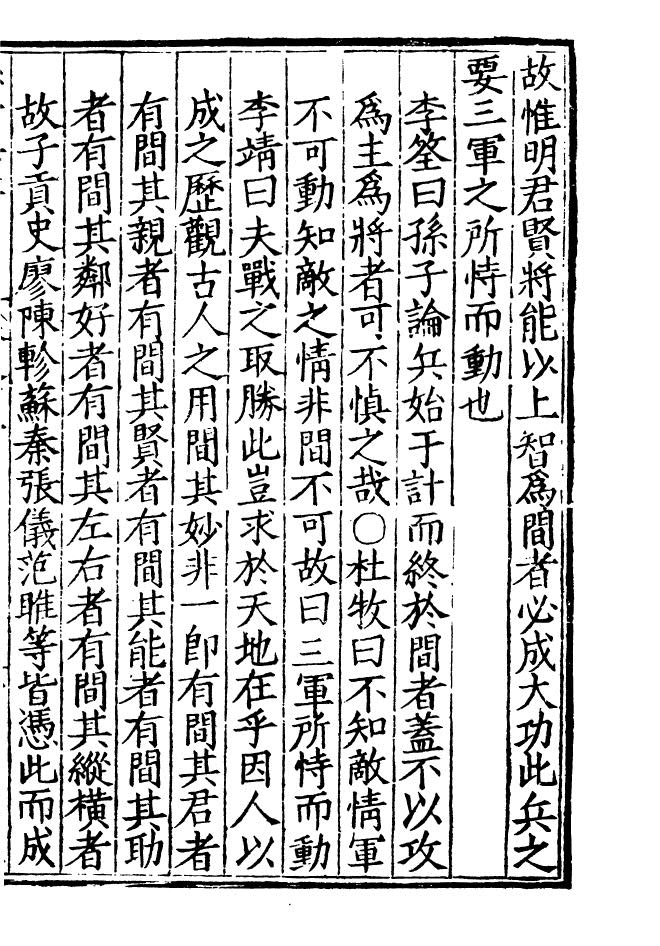 故惟明君賢將能以上智爲間者必成大功此兵之
要三軍之所恃而動也
李筌曰孫子論兵始于計而終於間者蓋不以攻
爲主爲將者可不慎之哉○杜牧曰不知敵情軍
不可動知敵之情非間不可故曰三軍所恃而動
李靖曰夫戰之取勝此豈求於天地在乎因人以
成之歷觀古人之用間其妙非一卽有間其君者
有間其親者有間其賢者有間其能者有間其助
者有間其鄰好者有間其左右者有間其縱橫者
故子貢史廖陳軫蘇秦張儀范睢等皆憑此而成